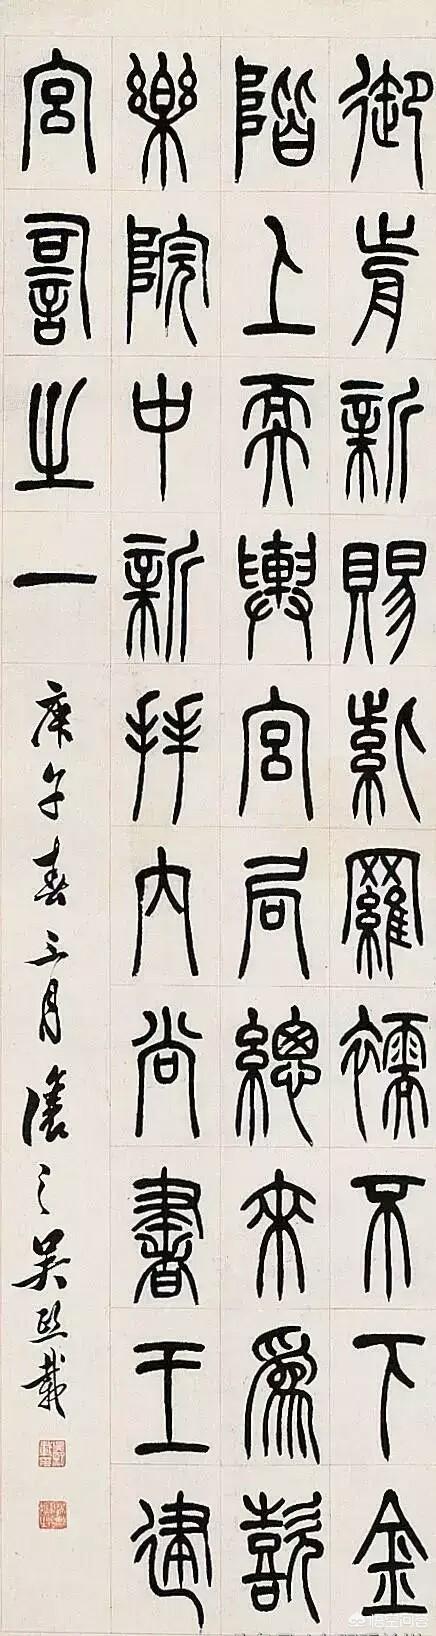 御前新賜紫羅襦不下金
階上耎輿宮局總來爲歖
樂院中新拜內尚書王建
宮詞之一
庚午春三月讓之吳熙載
悟空问答